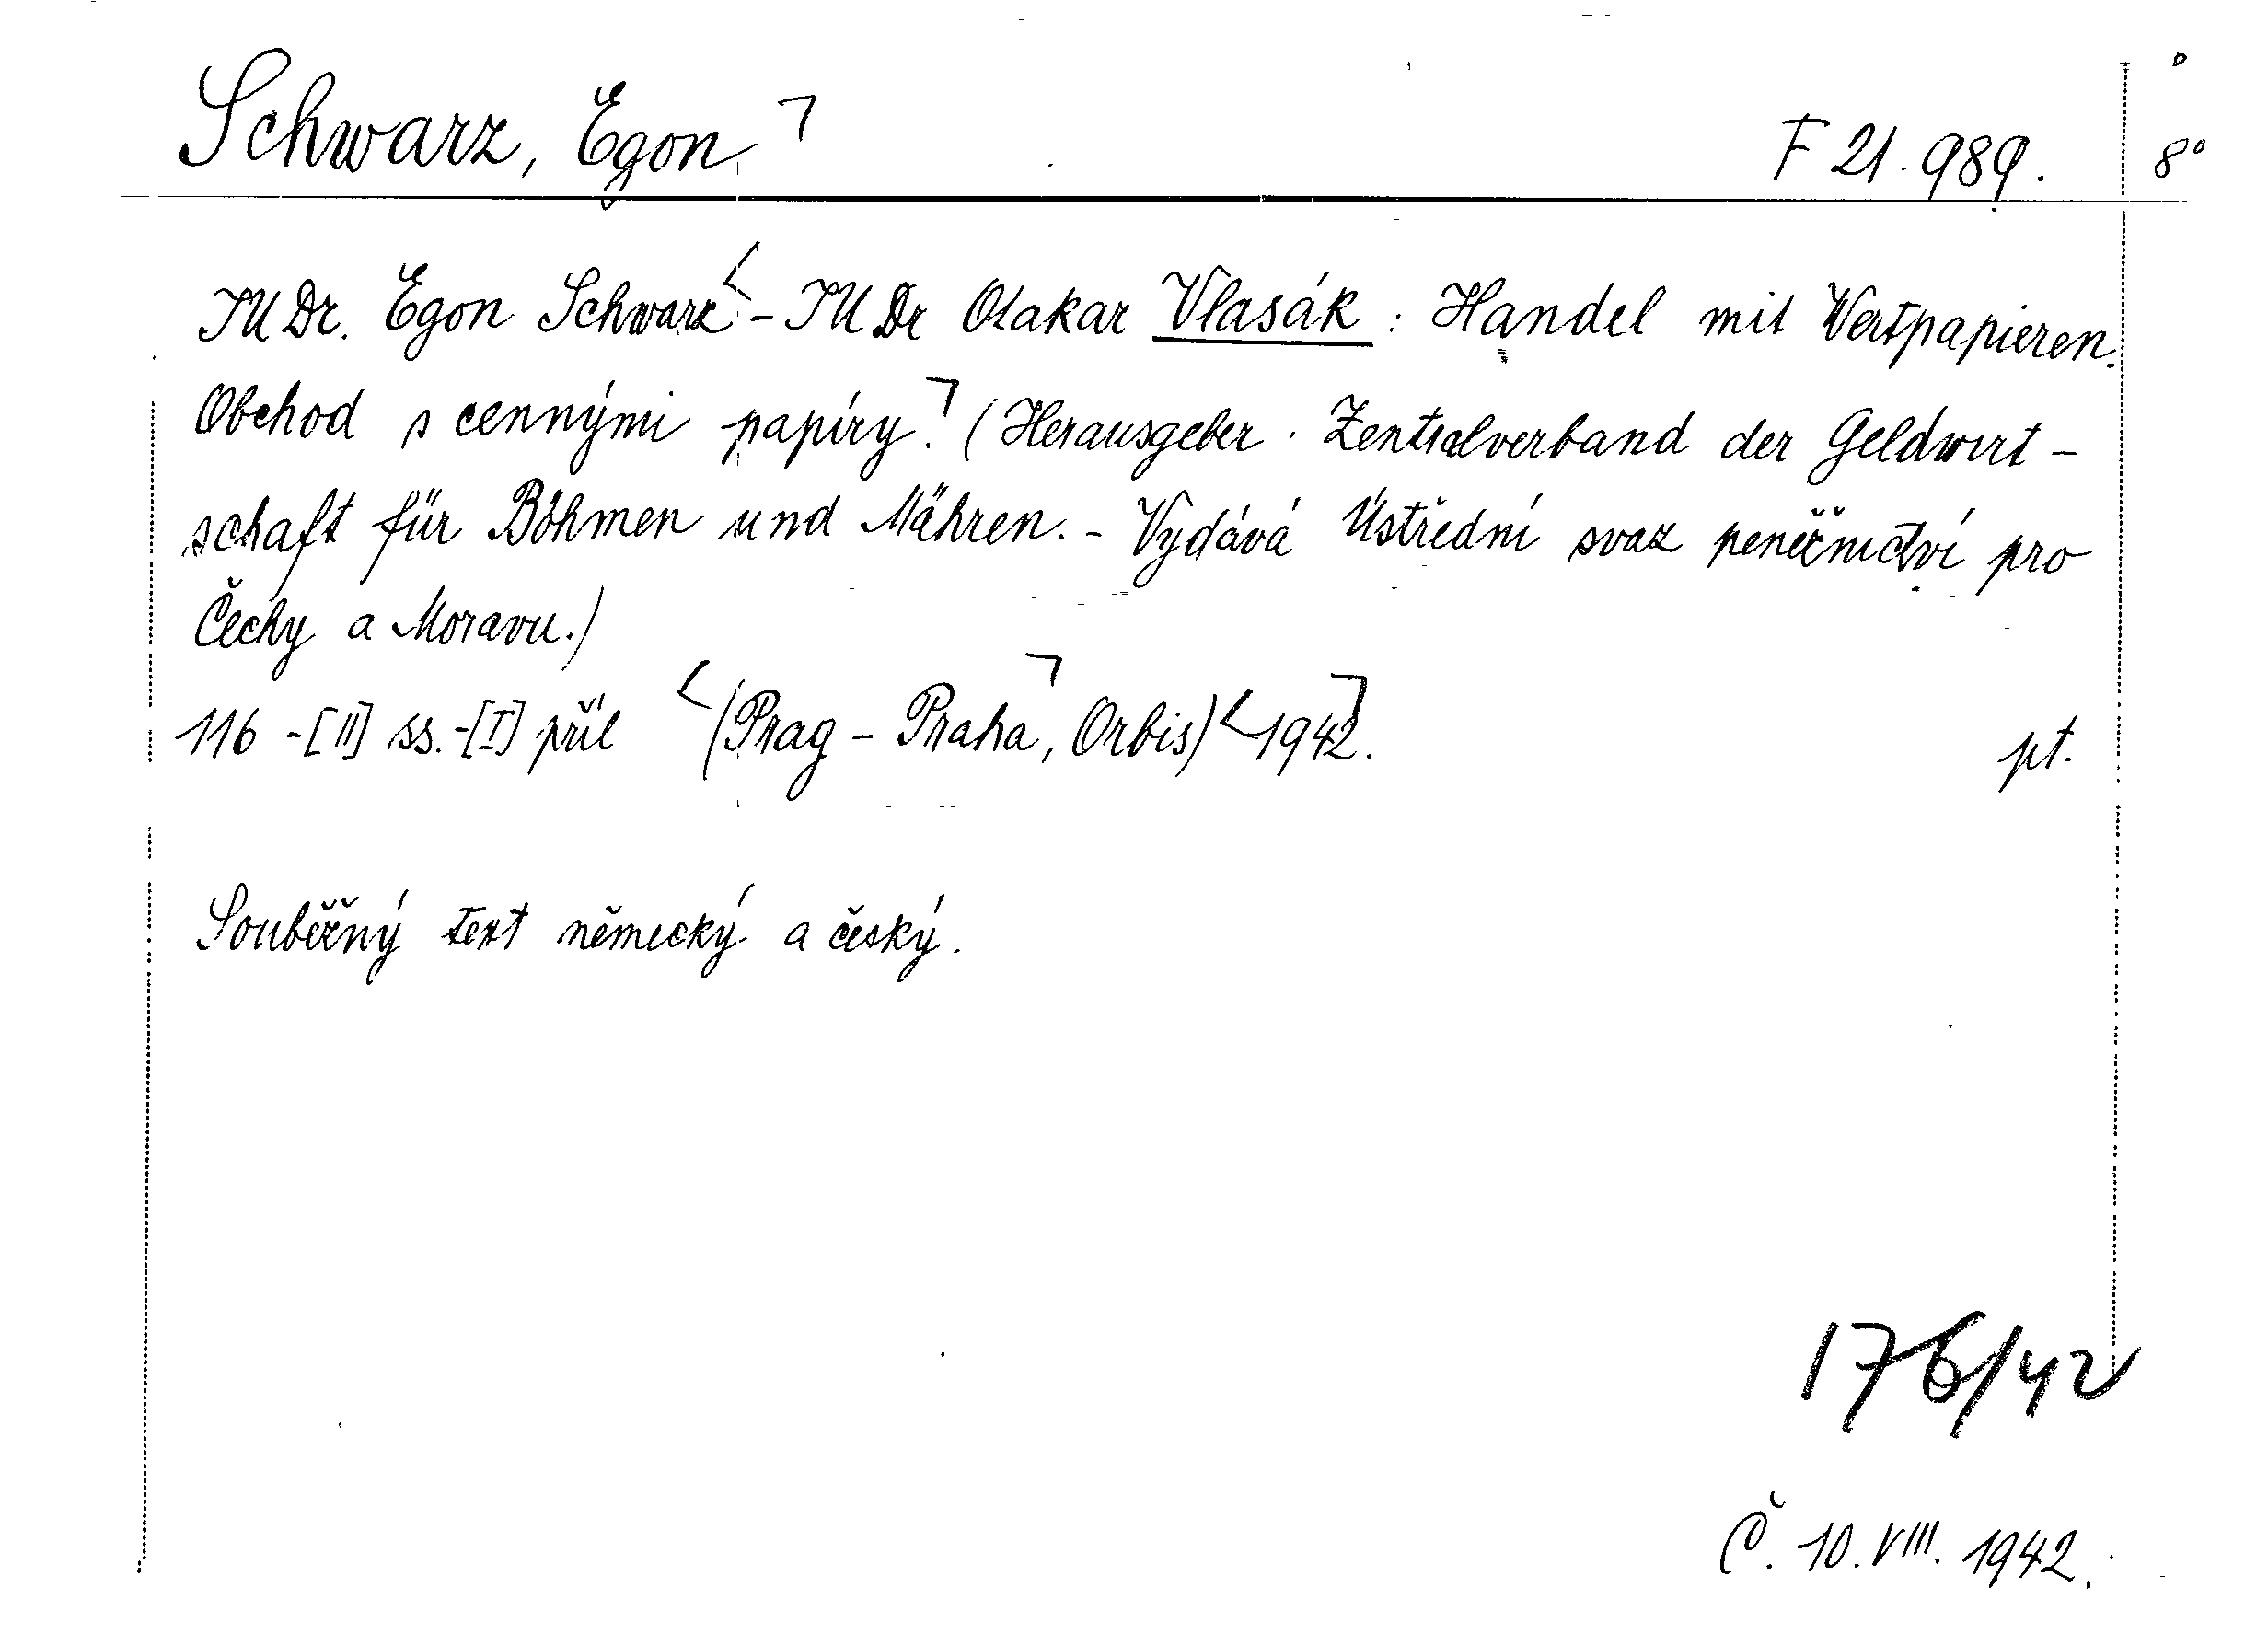 Schwarz, Egon F 21.989. 8°
JUDr. Egon Schwarz - JUDr Otakar Vlasák : Handel mit Wertpapieren.
Obchod s cennými papíry. (Herausgeber. Zentralverband der Geldwirt-
schaft für Böhmen und Mähren. - Vydává Ústřední svaz peněžnictví pro
Čechy a Moravu.)
116 -[II] ss. -[I] příl (Prag - Praha, Orbis) 1942. pt.
Souběžný text německý a český.
176/42
Č. 10. VIII. 1942.